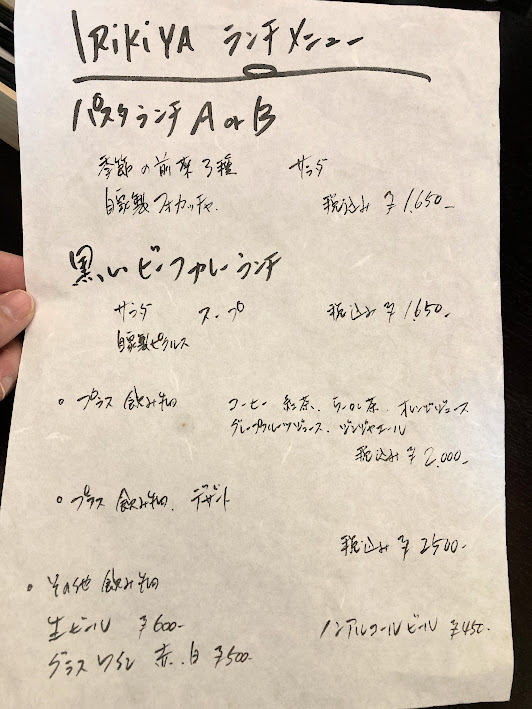 IRiKiYA ランチメニュー
パスタランチ A or B
季節の前菜3種 サラダ
自家製フォカッチャ 税込み ¥1,650-
黒いビーフカレーランチ
サラダ スープ 税込み ¥1,650-
自家製ピクルス
○ プラス 飲み物 コーヒー 紅茶、ウーロン茶、オレンジジュース
グレープフルーツジュース、ジンジャエール
税込み ¥2,000-
○ プラス 飲み物、デザート
税込み ¥2500-
○ その他 飲み物
生ビール ¥600- ノンアルコールビール ¥450-
グラスワイン 赤、白 ¥500-